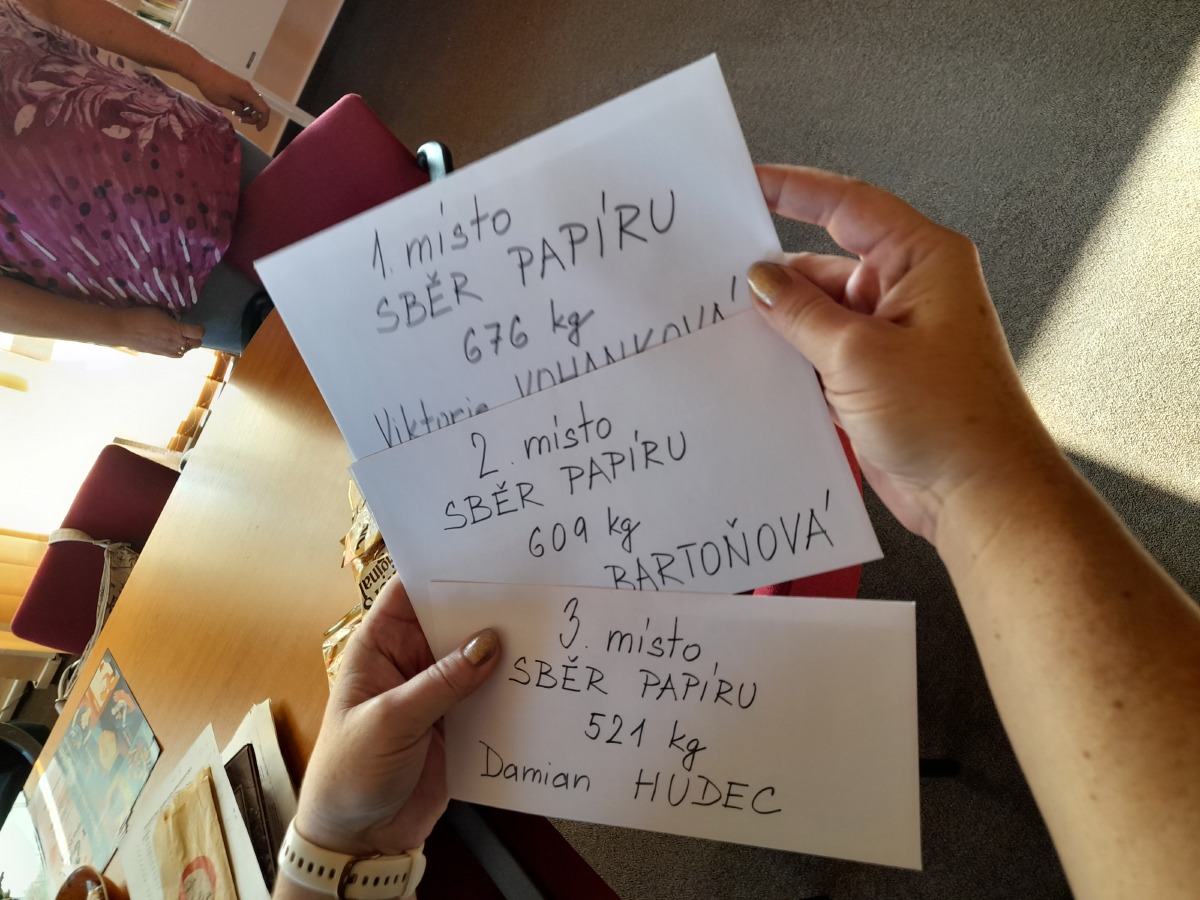 1. místo
SBĚR PAPÍRU
676 kg
Viktorie VOHANKOVÁ
2. místo
SBĚR PAPÍRU
609 kg
BARTOŇOVÁ
3. místo
SBĚR PAPÍRU
521 kg
Damian HUDEC